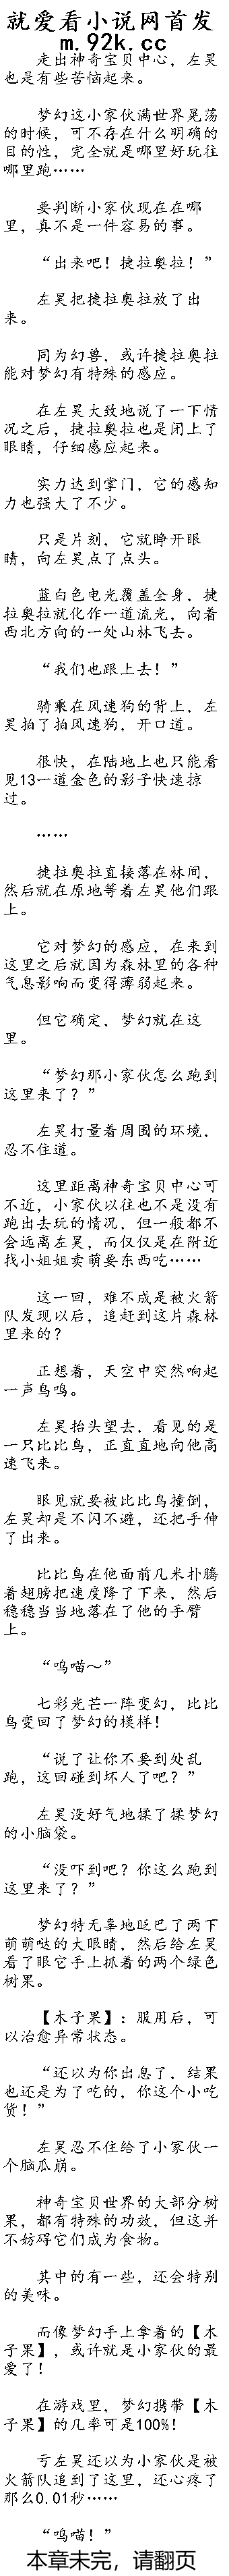 就爱看小说网首发
m.92k.cc
走出神奇宝贝中心，左昊
也是有些苦恼起来。
梦幻这小家伙满世界晃荡
的时候，可不存在什么明确的
目的性，完全就是哪里好玩往
哪里跑……
要判断小家伙现在在哪
里，真不是一件容易的事。
“出来吧！捷拉奥拉！”
左昊把捷拉奥拉放了出
来。
同为幻兽，或许捷拉奥拉
能对梦幻有特殊的感应。
在左昊大致地说了一下情
况之后，捷拉奥拉也是闭上了
眼睛，仔细感应起来。
实力达到掌门，它的感知
力也强大了不少。
只是片刻，它就睁开眼
睛，向左昊点了点头。
蓝白色电光覆盖全身，捷
拉奥拉就化作一道流光，向着
西北方向的一处山林飞去。
“我们也跟上去！”
骑乘在风速狗的背上，左
昊拍了拍风速狗，开口道。
很快，在陆地上也只能看
见13一道金色的影子快速掠
过。
……
捷拉奥拉直接落在林间，
然后就在原地等着左昊他们跟
上。
它对梦幻的感应，在来到
这里之后就因为森林里的各种
气息影响而变得薄弱起来。
但它确定，梦幻就在这
里。
“梦幻那小家伙怎么跑到
这里来了？”
左昊打量着周围的环境，
忍不住道。
这里距离神奇宝贝中心可
不近，小家伙以往也不是没有
跑出去玩的情况，但一般都不
会远离左昊，而仅仅是在附近
找小姐姐卖萌要东西吃……
这一回，难不成是被火箭
队发现以后，追赶到这片森林
里来的？
正想着，天空中突然响起
一声鸟鸣。
左昊抬头望去，看见的是
一只比比鸟，正直直地向他高
速飞来。
眼见就要被比比鸟撞倒，
左昊却是不闪不避，还把手伸
了出来。
比比鸟在他面前几米扑腾
着翅膀把速度降了下来，然后
稳稳当当地落在了他的手臂
上。
“呜喵～”
七彩光芒一阵变幻，比比
鸟变回了梦幻的模样！
“说了让你不要到处乱
跑，这回碰到坏人了吧？”
左昊没好气地揉了揉梦幻
的小脑袋。
“没吓到吧？你这么跑到
这里来了？”
梦幻特无辜地眨巴了两下
萌萌哒的大眼睛，然后给左昊
看了眼它手上抓着的两个绿色
树果。
【木子果】：服用后，可
以治愈异常状态。
“还以为你出息了，结果
也还是为了吃的，你这个小吃
货！”
左昊忍不住给了小家伙一
个脑瓜崩。
神奇宝贝世界的大部分树
果，都有特殊的功效，但这并
不妨碍它们成为食物。
其中的有一些，还会特别
的美味。
而像梦幻手上拿着的【木
子果】，或许就是小家伙的最
爱了！
在游戏里，梦幻携带【木
子果】的几率可是100%！
亏左昊还以为小家伙是被
火箭队追到了这里，还心疼了
那么0.01秒……
“呜喵！”
本章未完，请翻页